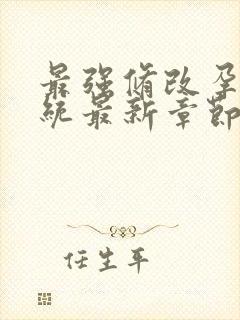 最强修改孕
统最新章节
任生平